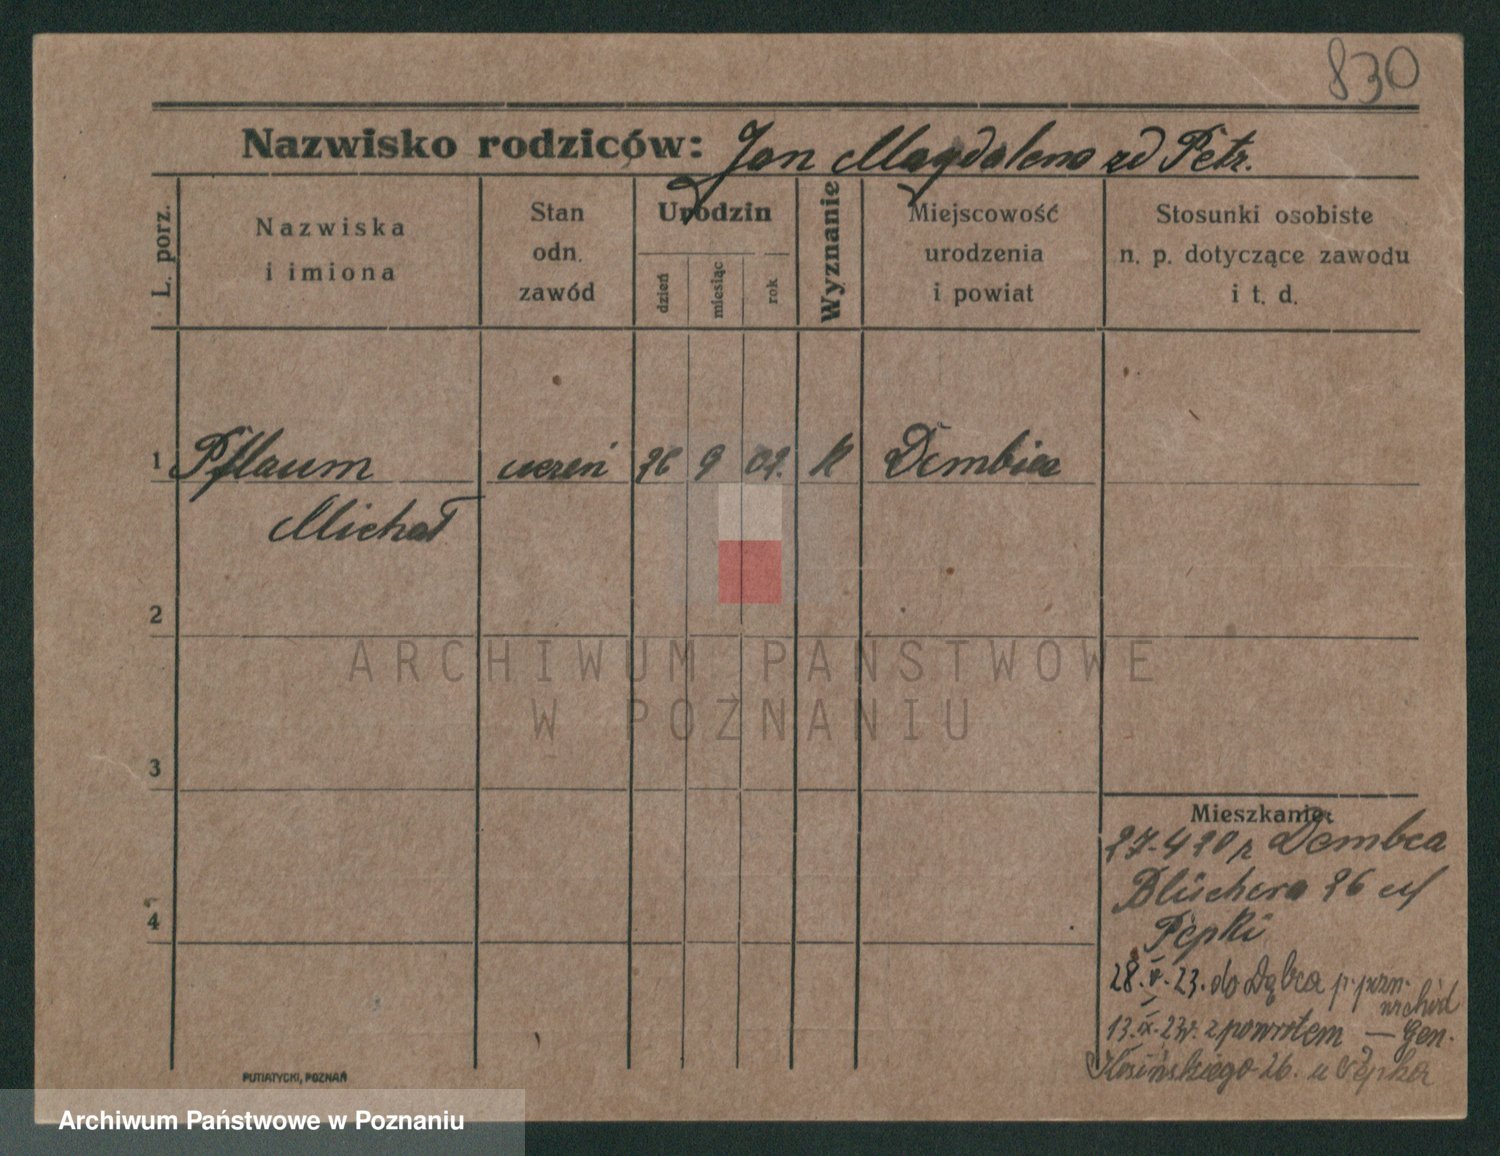 830
Nazwisko rodziców: Jan Magdalena zd Petr.
L. porz.
Nazwiska
i imiona
Stan
odn.
zawód
Urodzin
dzień
miesiąc
rok
Wyznanie
Miejscowość
urodzenia
i powiat
Stosunki osobiste
n. p. dotyczące zawodu
i t. d.
1 Pflaum uczeń 26 9 02. K Dembiec
Michał
2
ARCHIWUM PAŃSTWOWE
W POZNANIU
3
Mieszkanie:
27-4 20 z Dembca
Blüchera 26
Pepki
4
28. V. 23. do Dębca p. pozn.
13. IX. 23r. z powrotem — Gen.
Kosińskiego 26. u
PUTIATYCKI, POZNAŃ
Archiwum Państwowe w Poznaniu